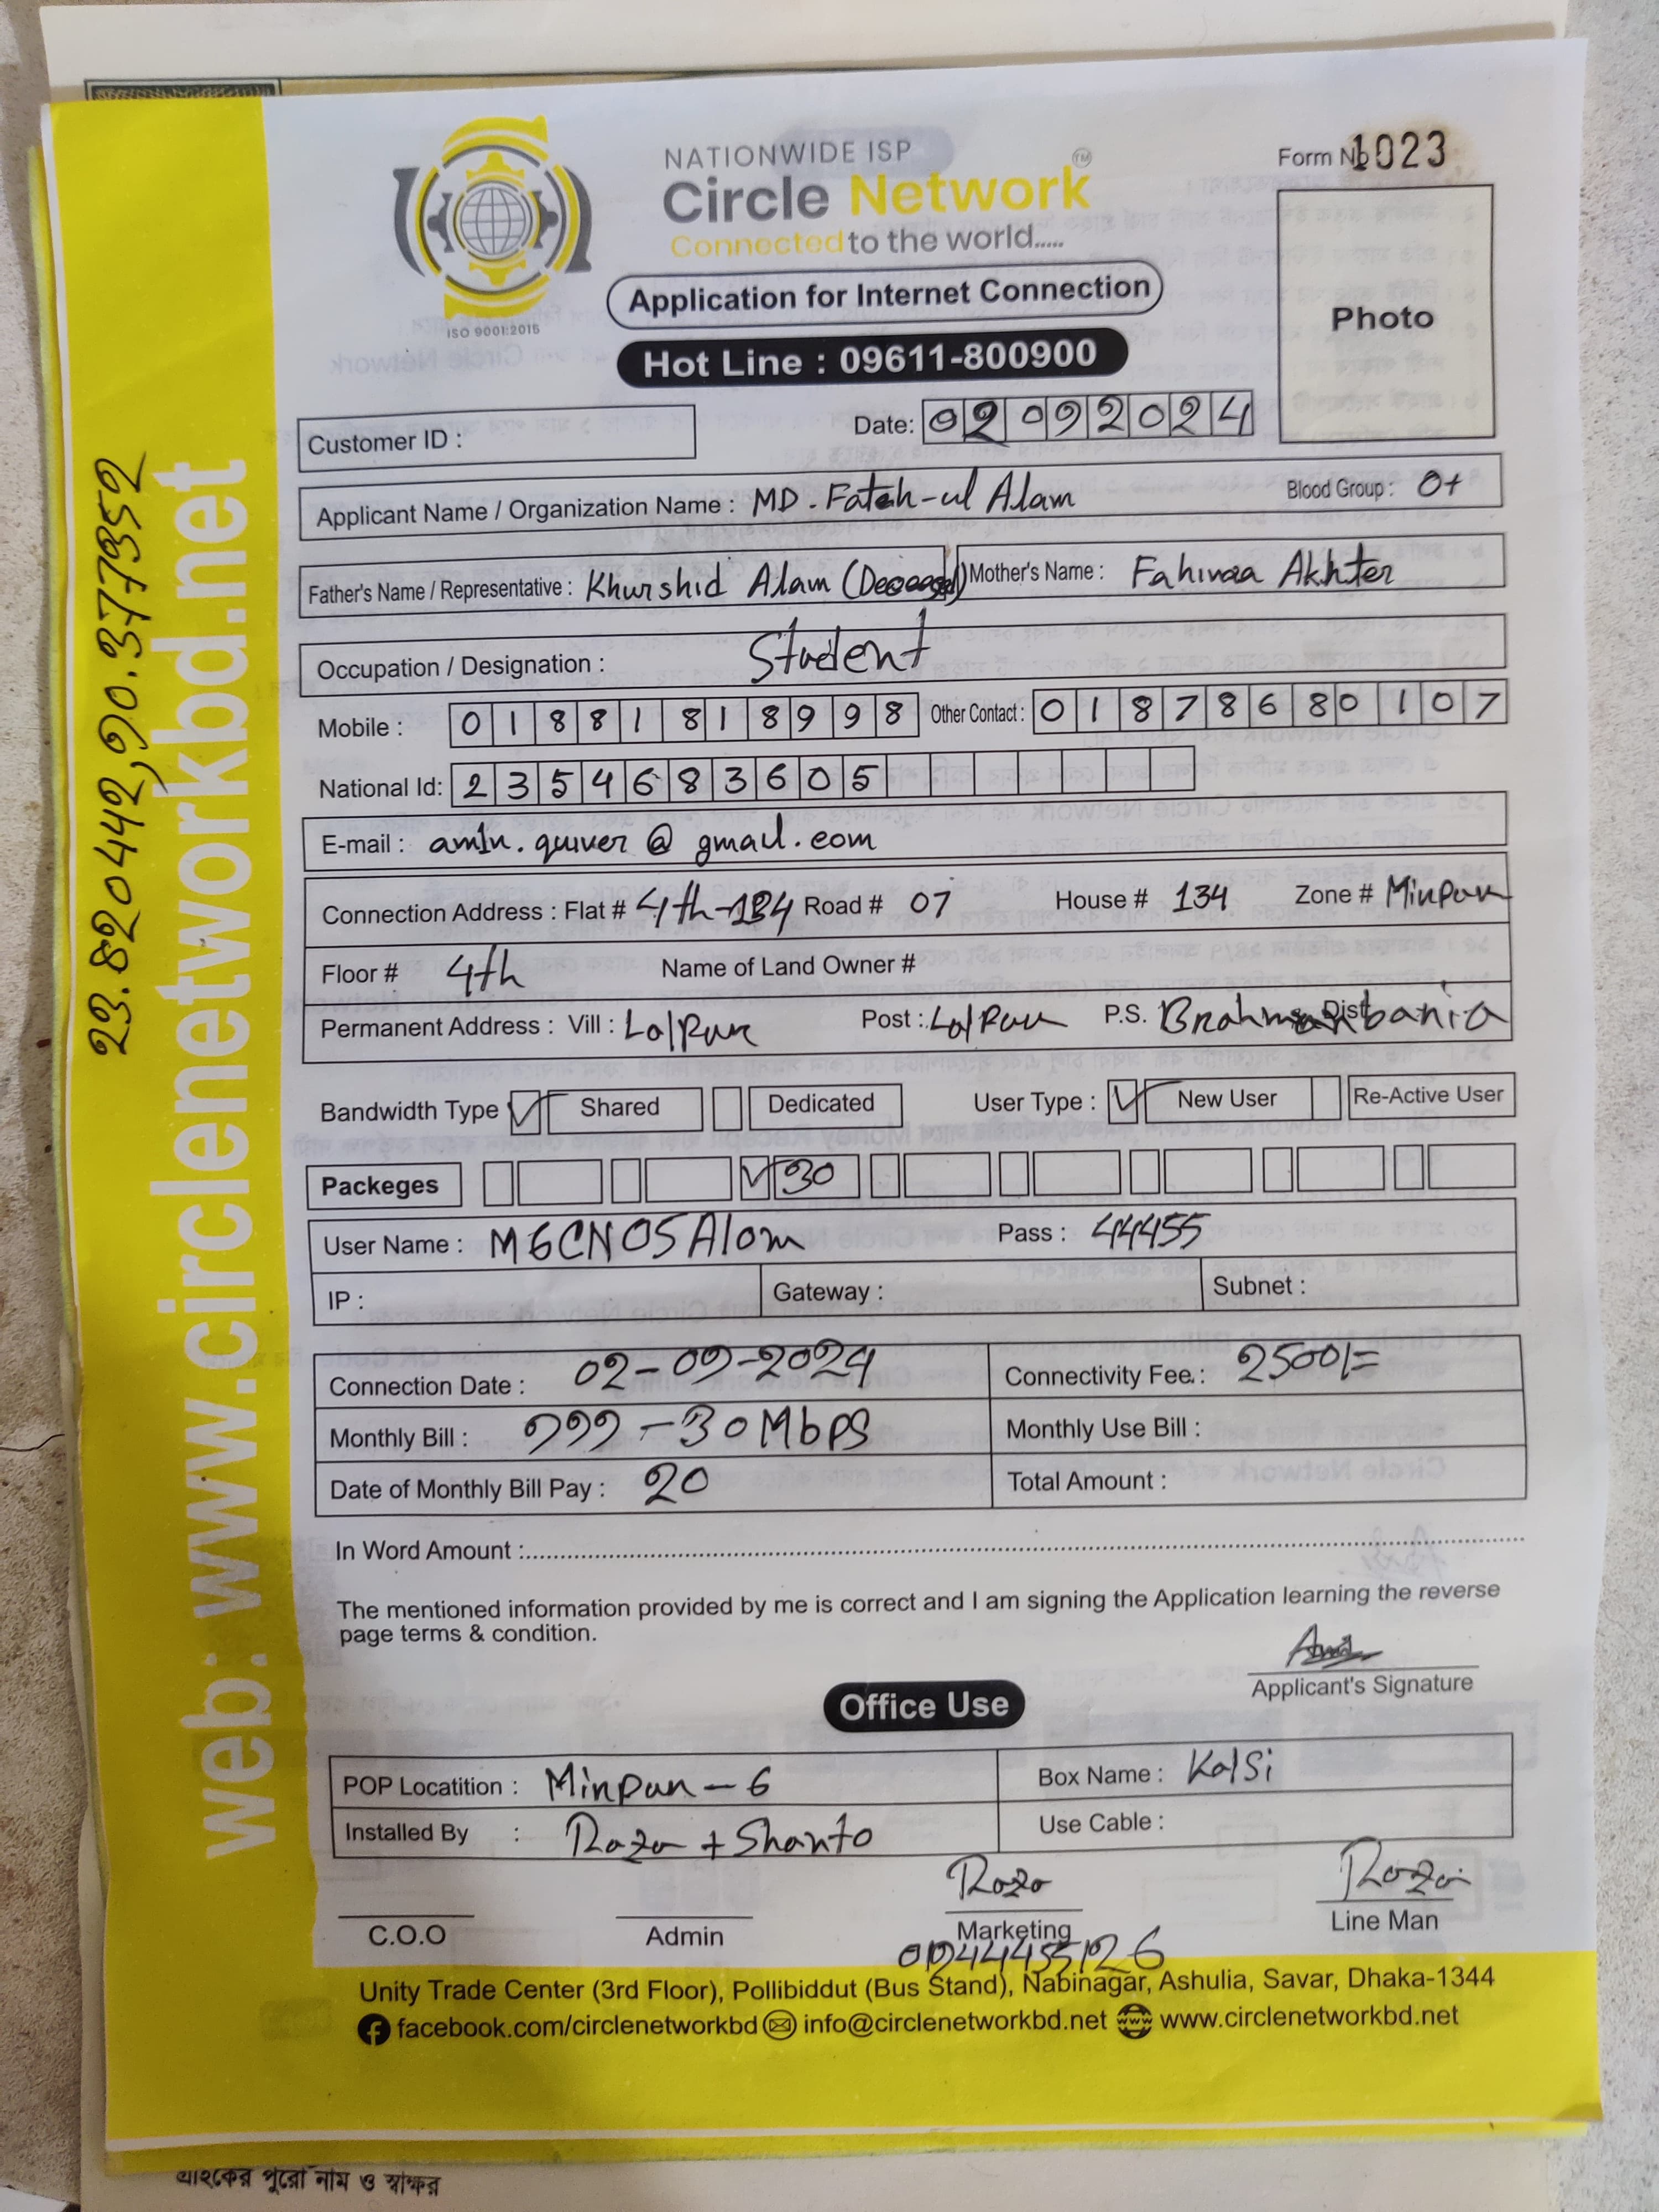 NATIONWIDE ISP
Circle Network TM
Connected to the world.....
ISO 9001:2015
Form No 1023
Photo
Application for Internet Connection
Hot Line : 09611-800900
Customer ID :
Date: 02 09 2024
Applicant Name / Organization Name : MD. Fateh-ul Alam Blood Group : O+
Father's Name / Representative : Khurshid Alam (Deceased) Mother's Name : Akhter
Occupation / Designation : Student
Mobile : 01881818998 Other Contact : 01878680107
National Id: 2354683605
E-mail : amin.quiver @ gmail.com
Connection Address : Flat # 4th-134 Road # 07 House # 134 Zone # Minpur
Floor # 4th Name of Land Owner #
Permanent Address : Vill : LalPur Post : LalPur P.S. Brahmanbaria Dist
Bandwidth Type Shared Dedicated User Type : New User Re-Active User
Packeges 30
User Name : MGCN05Alom Pass : 44455
IP : Gateway : Subnet :
Connection Date : 02-09-2024 Connectivity Fee : 2500/=
Monthly Bill : 999 - 30 Mbps Monthly Use Bill :
Date of Monthly Bill Pay : 20 Total Amount :
In Word Amount :
The mentioned information provided by me is correct and I am signing the Application learning the reverse
page terms & condition.
Applicant's Signature
Office Use
POP Locatition : Minpur - 6 Box Name : KalSi
Installed By : Raza + Shanto Use Cable :
Raza Raza
C.O.O Admin Marketing Line Man
Unity Trade Center (3rd Floor), Pollibiddut (Bus Stand), Nabinagar, Ashulia, Savar, Dhaka-1344
facebook.com/circlenetworkbd info@circlenetworkbd.net www www.circlenetworkbd.net
web: www.circlenetworkbd.net
23.820442, 90.377352
গ্রাহকের পুরো নাম ও স্বাক্ষর